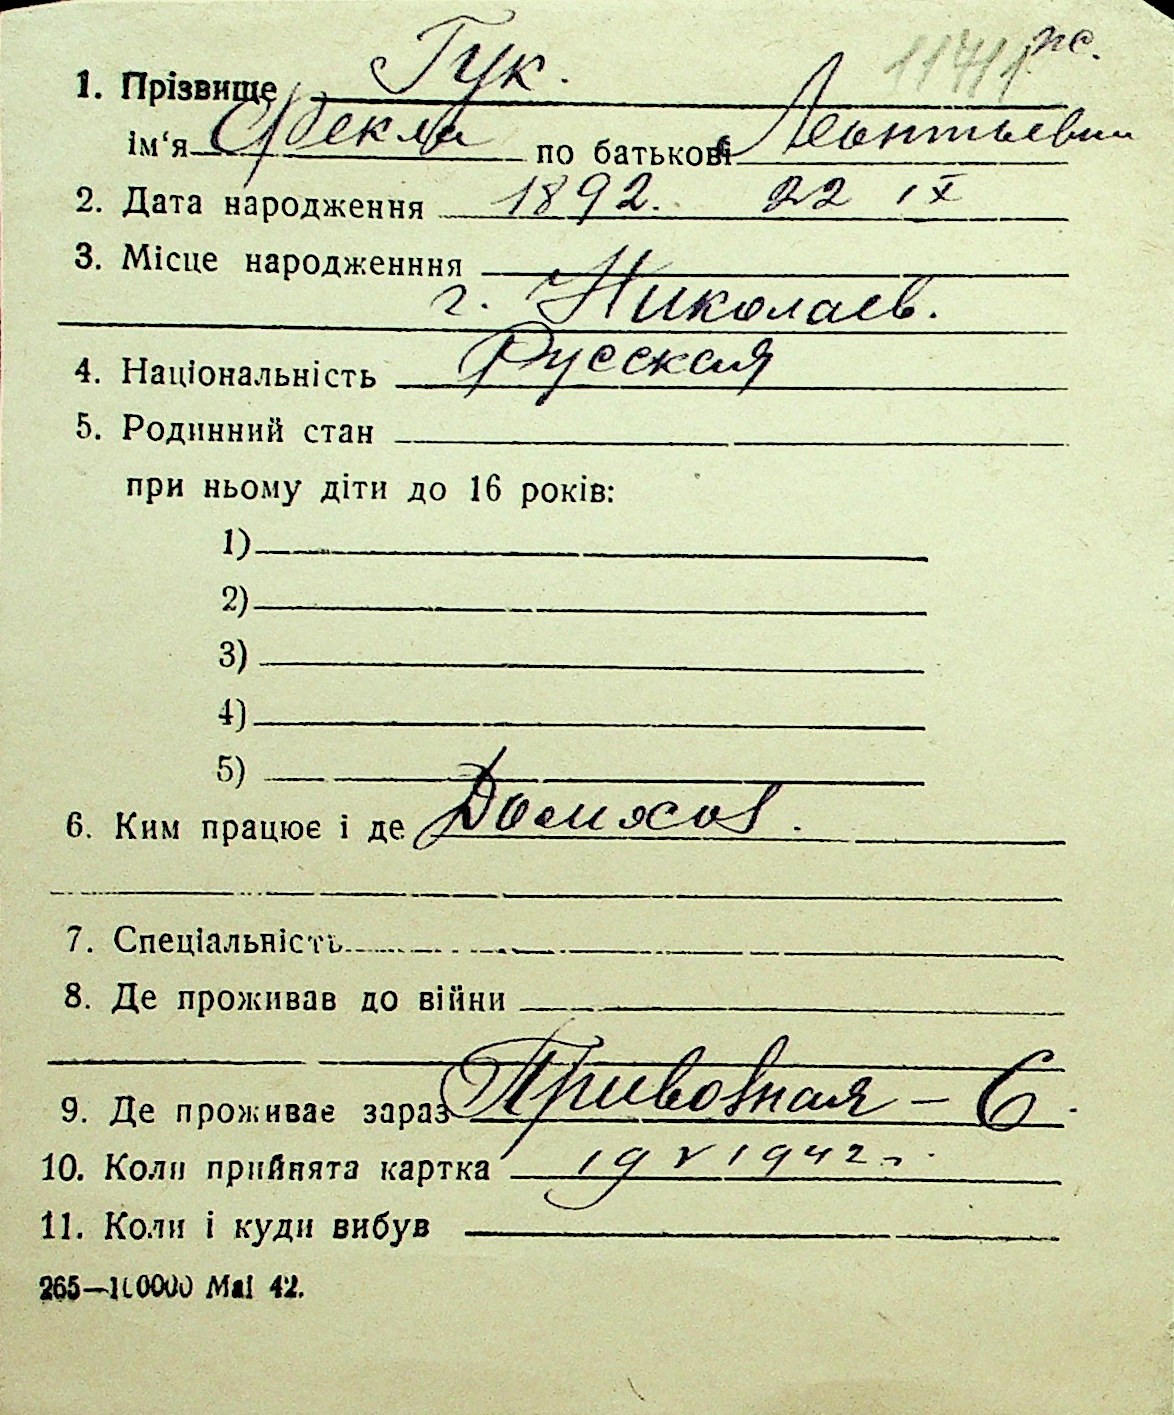 11711 пс.
1. Прізвище Гук.
ім‘я Фекла по батькові Леонтьевна
2. Дата народження 1892. 22 IX
3. Місце народженння
г. Николаев.
4. Національність Русская
5. Родинний стан
при ньому діти до 16 років:
1)
2)
3)
4)
5)
6. Ким працює і де Домохоз.
7. Спеціальність
8. Де проживав до війни
9. Де проживає зараз Привозная – 6.
10. Коли прийнята картка 19 V 1942 г.
11. Коли і куди вибув
265—100000 Mai 42.